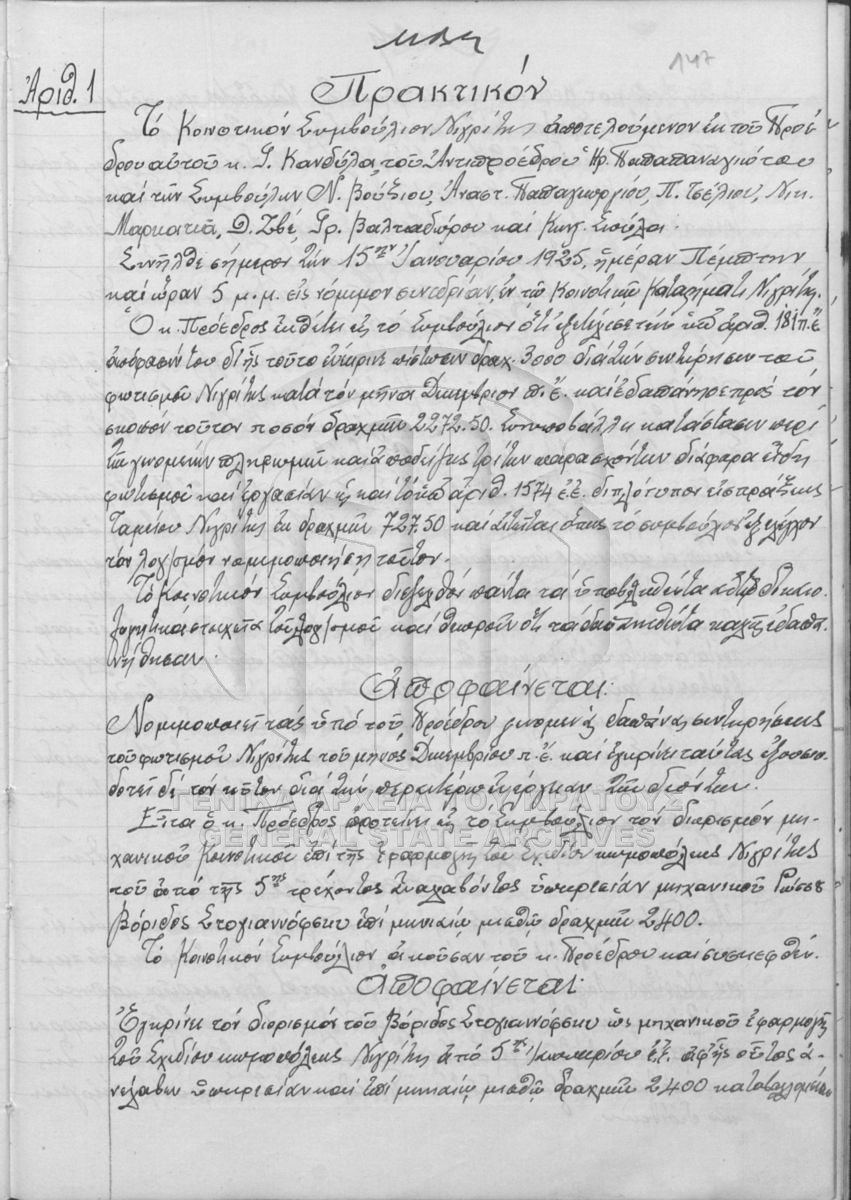 147
Ἀριθ. 1
Πρακτικόν
Τό Κοινοτικόν Συμβούλιον Νιγρίτης ἀποτελούμενον ἐκ τοῦ Προέ-
δρου αὐτοῦ κ. Γ. Κανδύλα, τοῦ Ἀντιπροέδρου Ἠρ. Παπαπαναγιώτου
καί τῶν Συμβούλων Ν. Βούξιου, Ἀναστ. Παπαγεωργίου, Π. Τσέλιου, Νικ.
Μαρκατιᾶ, Δ. Ζβέ, Γρ. Βαλταδώρου καί Κων. Σιούλα.
Συνῆλθε σήμερον τήν 15ην Ἰανουαρίου 1925, ἡμέραν Πέμπτην
καί ὥραν 5 μ.μ. εἰς νόμιμον συνεδρίαν ἐν τῷ Κοινοτικῷ Καταστήματι Νιγρίτης.
Ὁ κ. Πρόεδρος ἐκθέτει εἰς τό Συμβούλιον ὅτι ἐξετέλεσε τήν ὑπ' ἀριθ. 181 π.ἔ.
ἀπόφασίν του δι' ἧς τοῦτο ἐνέκρινε πίστωσιν δραχ. 3000 διά τήν συντήρησιν τοῦ
φωτισμοῦ Νιγρίτης κατά τόν μῆνα Δεκέμβριον π.ἔ. καί ἐδαπάνησε πρός τόν
σκοπόν τοῦτον ποσόν δραχμῶν 2272.50. Συνυποβάλλει κατάστασιν περί
τῶν γενομένων πληρωμῶν καί ἀποδείξεις τῶν παρασχόντων διάφορα εἴδη
φωτισμοῦ καί ἐργασίαν ὡς καί τό ὑπ' ἀριθ. 1574 ἐ.ἔ. διπλότυπον εἰσπράξεως
Ταμείου Νιγρίτης ἐκ δραχμῶν 727.50 καί αἰτεῖται ὅπως τό συμβούλιον ἐξελέγχον
τόν λογ/σμόν νομιμοποιήσῃ τοῦτον.
Τό Κοινοτικόν Συμβούλιον διεξελθόν πάντα τά ὑποβληθέντα αὐτῷ δικαιο-
λογητικά στοιχεῖα τοῦ λογ/σμοῦ καί θεωροῦν ὅτι τά δαπανηθέντα καλῶς ἐδαπα-
νήθησαν.
Ἀποφαίνεται:
Νομιμοποιεῖ τάς ὑπό τοῦ Προέδρου γενομένας δαπάνας συντηρήσεως
τοῦ φωτισμοῦ Νιγρίτης τοῦ μηνός Δεκεμβρίου π.ἔ. καί ἐγκρίνει ταύτας, ἐξουσιο-
δοτεῖ δέ τόν διά τήν περαιτέρω ἐνέργειαν τῶν δεόντων.
Εἶτα ὁ κ. Πρόεδρος προτείνει εἰς τό Συμβούλιον τόν διορισμόν μη-
χανικοῦ Κοινοτικοῦ ἐπί τῆς ἐφαρμογῆς τοῦ Σχεδίου κωμοπόλεως Νιγρίτης
τοῦ ἀπό τῆς 5ης τρέχοντος ἀναλαβόντος ὑπηρεσίαν μηχανικοῦ Ρώσσου
Βόριδος Στογιαννόφσκυ ἐπί μηνιαίῳ μισθῷ δραχμῶν 2400.
Τό Κοινοτικόν Συμβούλιον ἀκοῦσαν τοῦ κ. Προέδρου καί συσκεφθέν.
Ἀποφαίνεται:
Ἐγκρίνει τόν διορισμόν τοῦ Βόριδος Στογιαννόφσκυ ὡς μηχανικοῦ ἐφαρμογῆς
τοῦ Σχεδίου κωμοπόλεως Νιγρίτης ἀπό 5ης Ἰανουαρίου ἐ.ἔ. ἀφ' ἧς οὗτος ἀ-
νέλαβεν ὑπηρεσίαν καί ἐπί μηνιαίῳ μισθῷ δραχμῶν 2400 καταβαλλομένῳ
ΓΕΝΙΚΑ ΑΡΧΕΙΑ ΤΟΥ ΚΡΑΤΟΥΣ
GENERAL STATE ARCHIVES